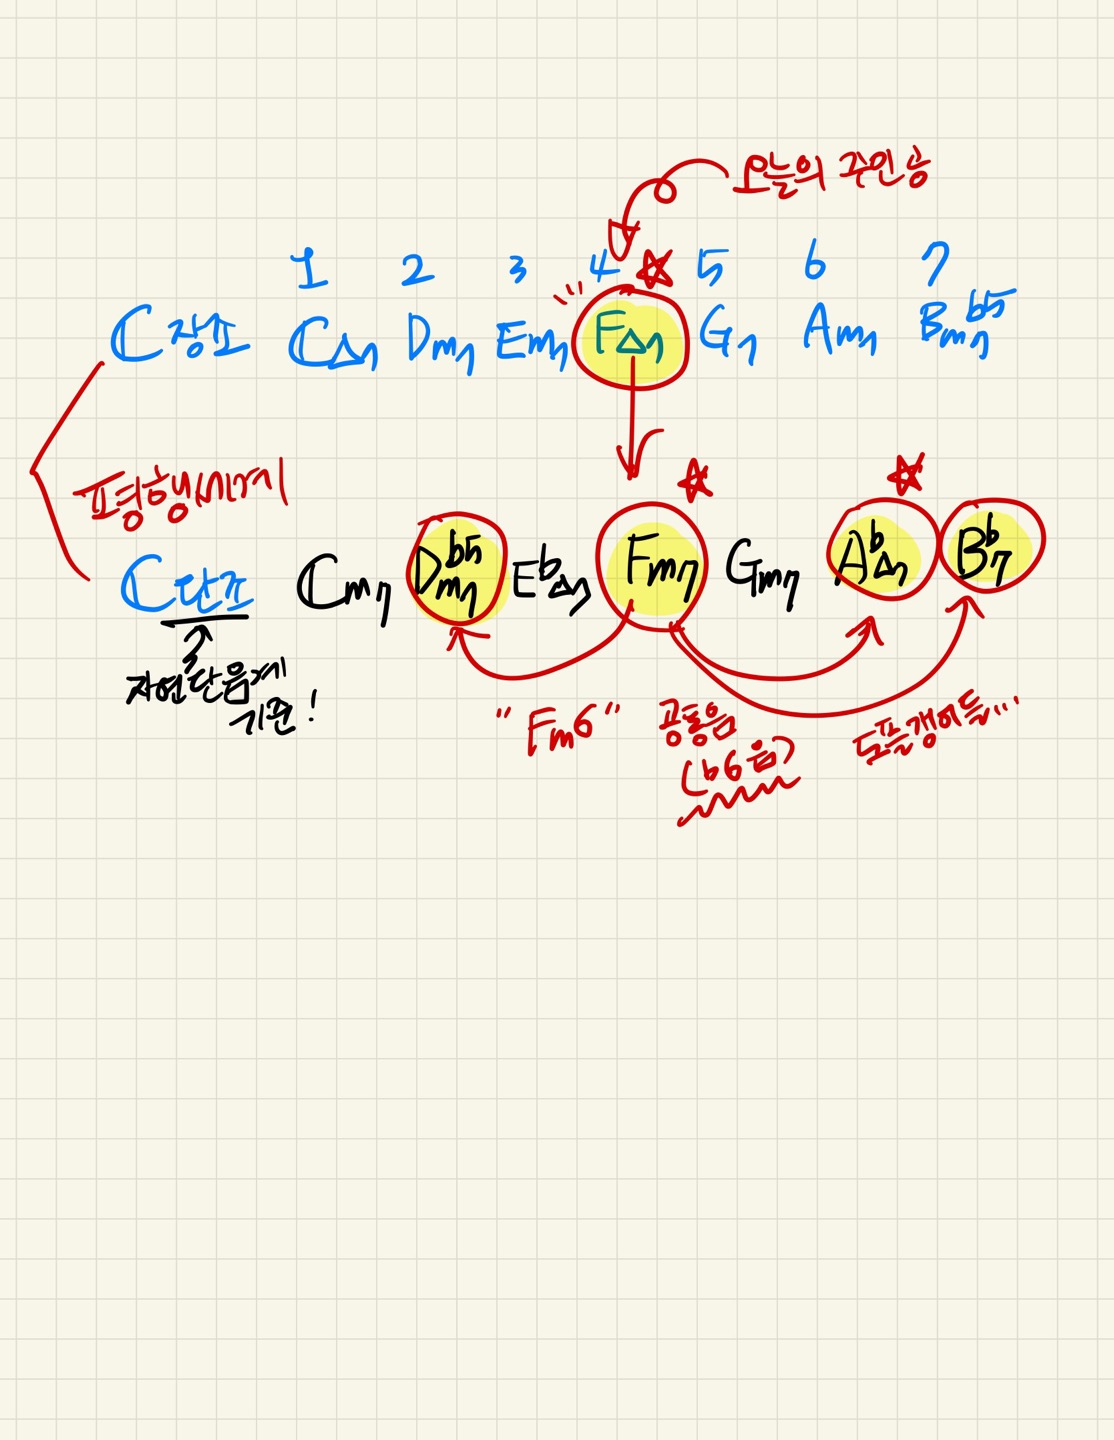 오늘의 주인공
1 2 3 4 5 6 7
C장조 C△7 Dm7 Em7 F△7 G7 Am7 Bm7b5
평행세계
C단조 Cm7 Dm7b5 Eb△7 Fm7 Gm7 Ab△7 Bb7
자연단음계
기준!
"Fm6"
공통음
(b6음)
도플갱어들...